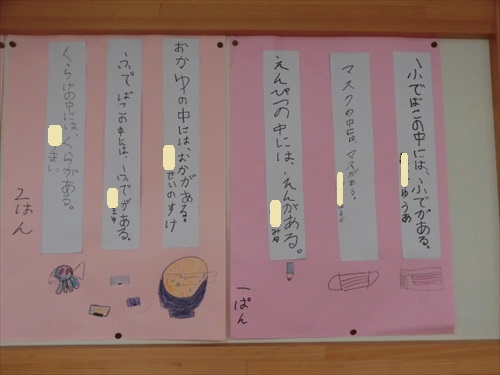 ふでばこの中には、ふでがある。
ゆうあ
マスクの中には、マスがある。
えんぴつの中には、えんがある。
みゆ
一ぱん
おかゆの中には、おかがある。
せいのすけ
ふでばこの中には、ふでがある。
まゆ
くらげの中には、くらがある。
まい
2はん